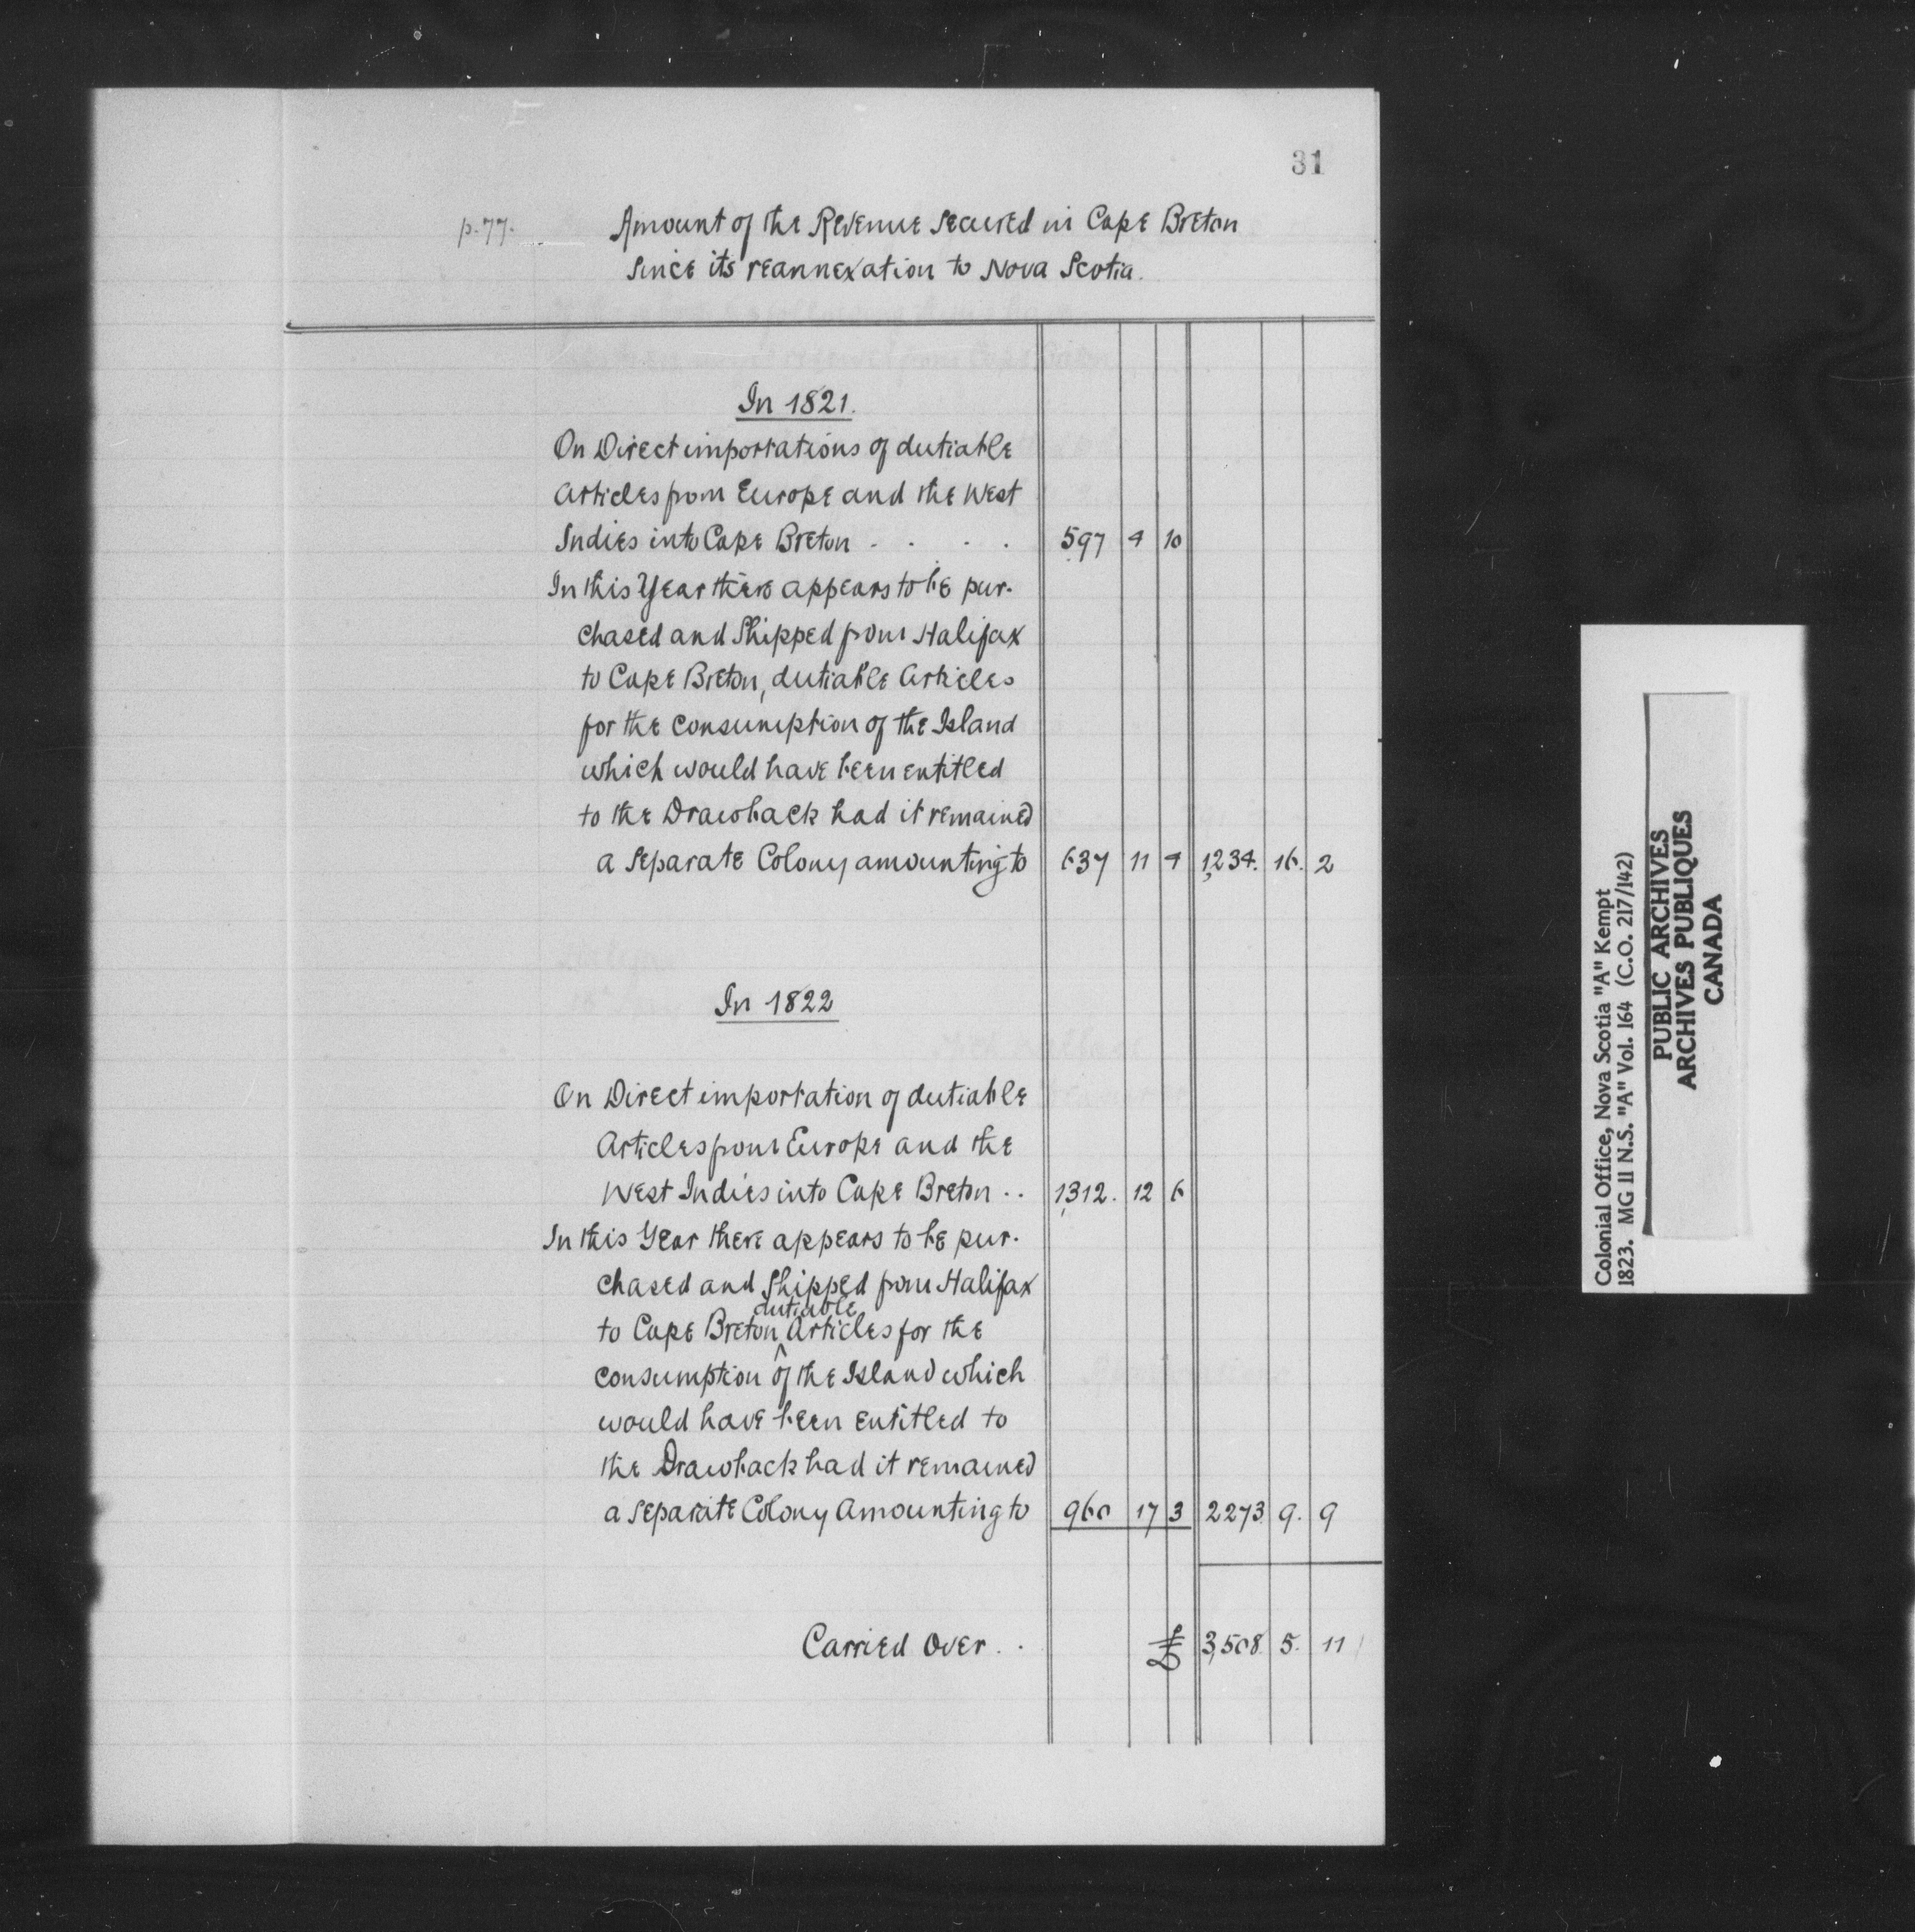 31
p. 77.
Amount of the Revenue secured in Cape Breton
since its reannexation to Nova Scotia.
In 1821.
On Direct importations of dutiable
Articles from Europe and the West
Indies into Cape Breton . . . . 597 4 10
In this Year there appears to be pur-
chased and Shipped from Halifax
to Cape Breton, dutiable Articles
for the consumption of the Island
which would have been entitled
to the Drawback had it remained
a separate Colony amounting to 637 11 4 1,234. 16. 2
In 1822
On Direct importation of dutiable
Articles from Europe and the
West Indies into Cape Breton . . 1,312. 12 6
In this Year there appears to be pur-
chased and Shipped from Halifax
dutiable
to Cape Breton ^ Articles for the
consumption of the Island which
would have been entitled to
the Drawback had it remained
a separate Colony Amounting to 960 17 3 2273. 9. 9
Carried Over . . £ 3,508. 5. 11
Colonial Office, Nova Scotia "A" Kempt
1823. MG 11 N.S. "A" Vol. 164 (C.O. 217/142)
PUBLIC ARCHIVES
ARCHIVES PUBLIQUES
CANADA